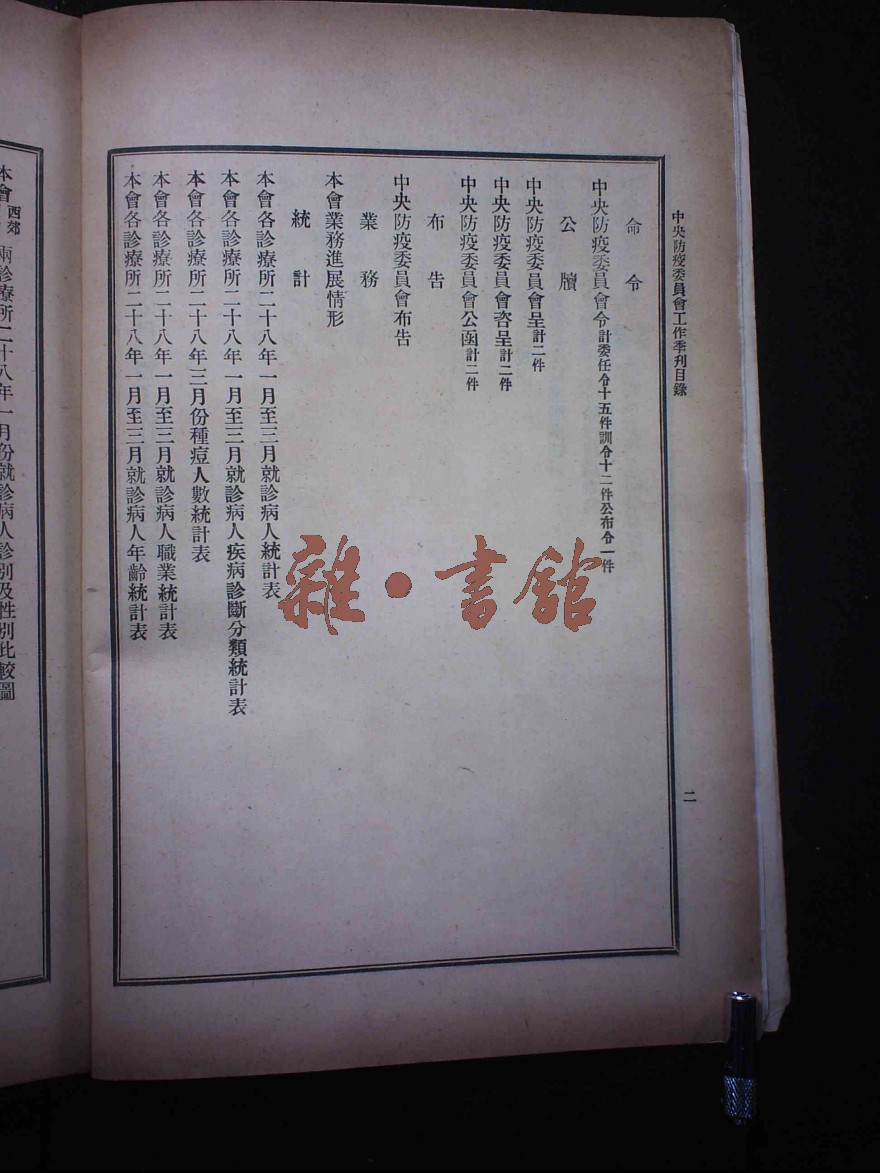 中央防疫委員會工作季刊目錄
二
命令
中央防疫委員會令計委任令十五件訓令十二件公布令一件
公牘
中央防疫委員會呈計二件
中央防疫委員會咨呈計二件
中央防疫委員會公函計二件
布告
中央防疫委員會布告
業務
本會業務進展情形
統計
本會各診療所二十八年一月至三月就診病人統計表
本會各診療所二十八年一月至三月就診病人疾病診斷分類統計表
本會各診療所二十八年三月份種痘人數統計表
本會各診療所二十八年一月至三月就診病人職業統計表
本會各診療所二十八年一月至三月就診病人年齡統計表
本會西郊兩診療所二十八年一月份就診病人診別及性別比較圖
雜·書館